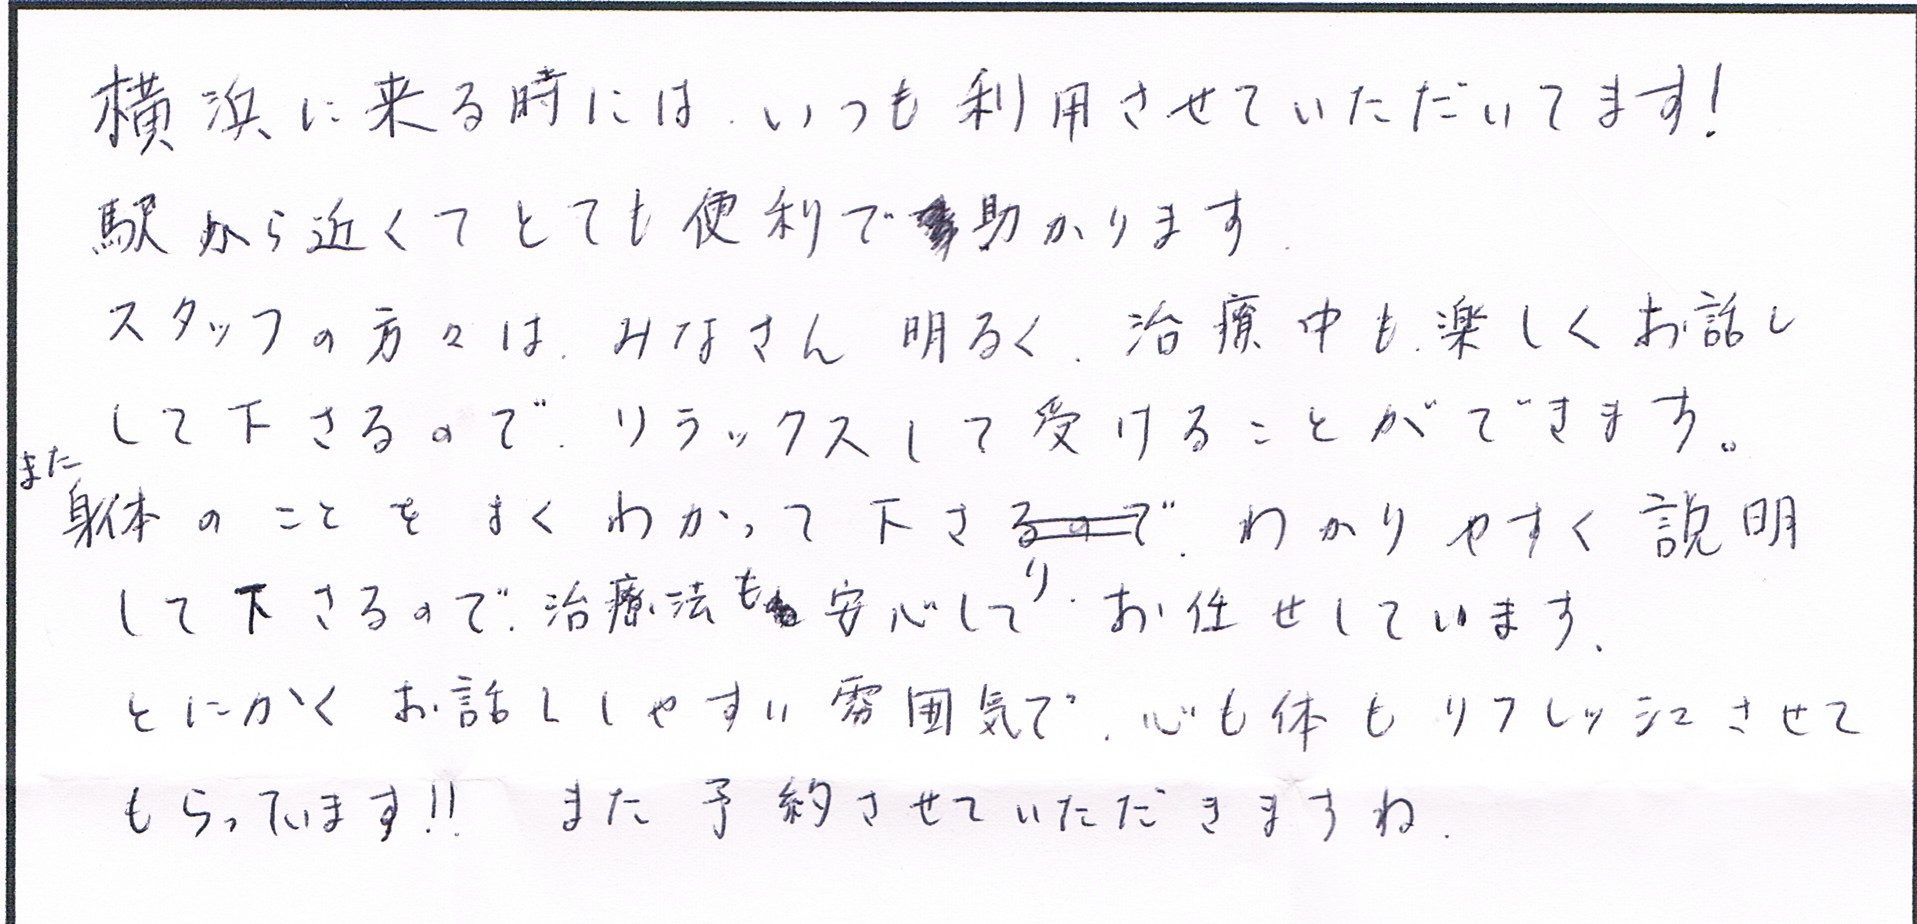 横浜に来る時には、いつも利用させていただいてます!
駅から近くてとても便利で助かります.
スタッフの方々は、みなさん明るく、治療中も楽しくお話し
して下さるので、リラックスして受けることができます。
また身体のことをよくわかって下さり、わかりやすく説明
して下さるので、治療法も安心してお任せしています、
とにかくお話ししやすい雰囲気で、心も体もリフレッシュさせて
もらっています!! また予約させていただきますね.